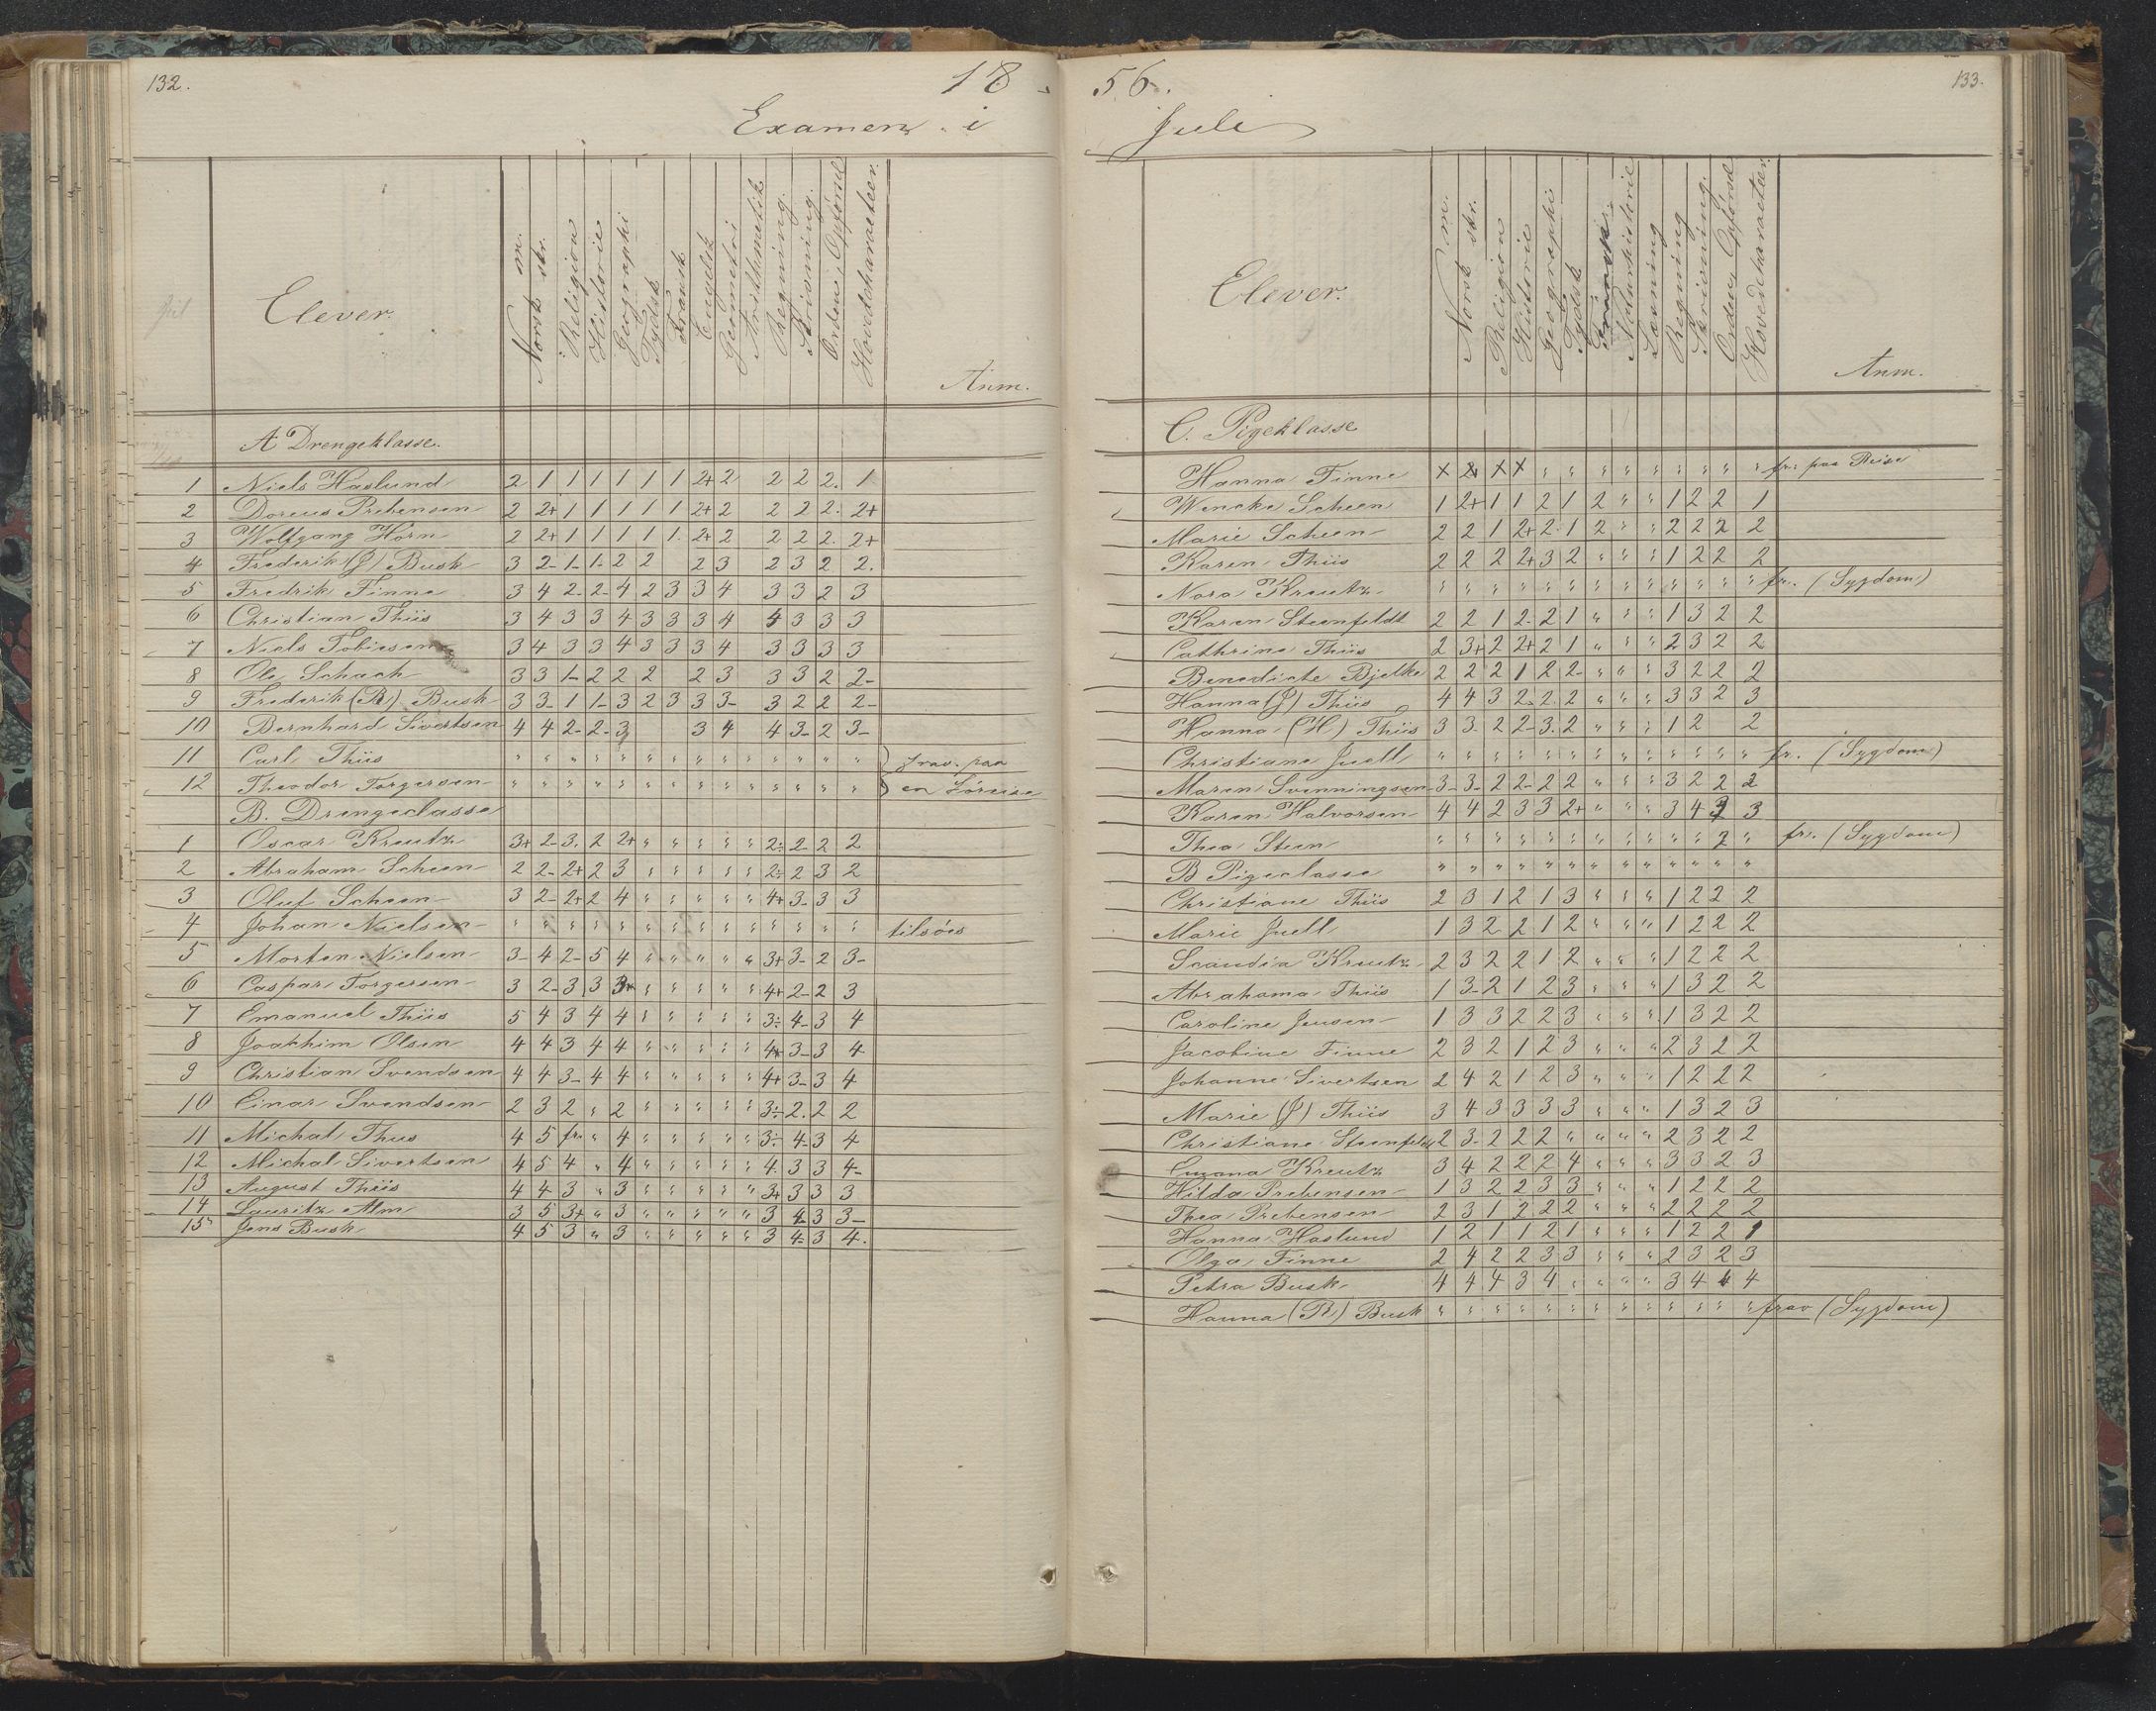 132.
18
Examen i
Elever.
Norsk m.
skr.
Religion
Historie
Geographi
Tydsk
Fransk
Engelsk
Geometri
Arithmetik
Regning.
Skrivning.
Orden, Opførsel
Hovedcharacteer.
Anm.
A Drengeklasse.
1 Niels Haslund 2 1 1 1 1 1 1 2+ 2 2 2 2. 1
2 Doreus Prebensen 2 2+ 1 1 1 1 1 2+ 2 2 2 2. 2+
3 Wolfgang Hørn 2 2+ 1 1 1 1 1. 2+ 2 2 2 2. 2+
4 Frederik (J) Busk 3 2- 1- 1- 2 2 2 3 2 3 2 2.
5 Fredrik Finne 3 4 2- 2- 4 2 3 3 4 3 3 2 3
6 Christian Thiis 3 4 3 3 4 3 3 3 4 4 3 3 3
7 Niels Tobiesen 3 4 3 3 4 3 3 3 4 3 3 3 3
8 Ole Schach 3 3 1- 2 2 2 2 3 3 3 2 2-
9 Frederik (R) Busk 3 3- 1 1- 3 2 3 3 3- 3 2 2 2-
10 Bernhard Sivertsen 4 4 2- 2- 3 3 4 4 3- 2 3-
11 Carl Thiis " " " " " " " " " " " " " " frav. paa
12 Theodor Torgersen " " " " " " " " " " " " " " en Søreise
B. Drengeclasse
1 Oscar Kreutz 3+ 2- 3. 2 2+ " " " " " 2÷ 2- 2 2
2 Abraham Scheen 2 2- 2+ 2 3 " " " " " 2÷ 2 3 2
3 Oluf Scheen 3 2- 2+ 2 4 " " " " " 4+ 3- 3 3
4 Johan Nielsen " " " " " " " " " " " " " " tilsøes
5 Morten Nielsen 3- 4 2- 5 4 " " " " " 3+ 3- 2 3-
6 Caspar Torgersen 3 2- 3 3 3+ " " " " " 4+ 2- 2 3
7 Emanuel Thiis 5 4 3 4 4 " " " " " 3÷ 4- 3 4
8 Joakhim Olsen 4 4 3 4 4 " " " " " 4+ 3- 3 4
9 Christian Svendsen 4 4 3- 4 4 " " " " " 4+ 3- 3 4
10 Einar Svendsen 2 3 2 " 2 " " " " " 3÷ 2. 2 2
11 Michal Thus 4 5 fr. " 4 " " " " " 3÷ 4- 3 4
12 Michal Sivertsen 4 5 4 " 4 " " " " " 4. 3 3 4-
13 August Thiis 4 4 3 " 3 " " " " " 3+ 3 3 3
14 Lauritz Alm 3 5 3+ " 3 " " " " " 3 4- 3 3-
15 Jens Busk 4 5 3 " 3 " " " " " 3 4- 3 4.
56.
133.
Juli
Elever.
Norsk m.
skr.
Religion
Historie
Geographi
Tydsk
Fransk
Naturhistorie
Læsning
Regning
Skrivning.
Orden, Opførsel
Hovedcharacteer.
Anm.
C. Pigeklasse
Hanna Finne X 2 X X " " " " " " " " " fr. paa Reise
Wencke Scheen 1 2+ 1 1 2 1 2 " " 1 2 2 1
Marie Scheen 2 2 1 2+ 2 1 2 " " 2 2 2 2
Karen Thiis 2 2 2 2+ 3 2 " " " 1 2 2 2
Nora Kreutz " " " " " " " " " " " " " fr. (Sygdom)
Karen Steenfeldt 2 2 1 2- 2 1 " " " 1 3 2 2
Cathrine Thiis 2 3+ 2 2+ 2 1 " " " 2 3 2 2
Benedicte Bjelke 2 2 2 1 2 2- " " " 3 2 2 2
Hanna (J) Thiis 4 4 3 2- 2. 2 " " " 3 3 2 3
Hanna (H) Thiis 3 3- 2 2- 3. 2 " " " 1 2 2
Christiane Juell " " " " " " " " " " " " " fr. (Sygdom)
Maren Svenningsen 3- 3- 2 2- 2 2 " " " 3 2 2 2
Karen Halvorsen 4 4 2 3 3 2+ " " " 3 4 3 3
Thea Steen " " " " " " " " " " " 2 " fr. (Sygdom)
B Pigeclasse " " " " " " " " " " " " "
Christiane Thiis 2 3 1 2 1 3 " " " 1 2 2 2
Marie Juell 1 3 2 2 1 2 " " " 1 2 2 2
Scandia Kreutz 2 3 2 2 1 2 " " " 1 2 2 2
Abrahama Thiis 1 3- 2 1 2 3 " " " 1 3 2 2
Caroline Jensen 1 3 3 2 2 3 " " " 1 3 2 2
Jacobine Finne 2 3 2 1 2 3 " " " 2 3 2 2
Johanne Sivertsen 2 4 2 1 2 3 " " " 1 2 2 2
Marie (J) Thiis 3 4 3 3 3 3 " " " 1 3 2 3
Christiane Steenfeldt 2 3- 2 2 2 " " " " 2 3 2 2
Kreutz 3 4 2 2 2 4 " " " 3 3 2 3
Hilda Prebensen 1 3 2 2 3 3 " " " 1 2 2 2
Thea Prebensen 2 3 1 2 2 2 " " " 2 2 2 2
Hanna Haslund 1 2 1 1 2 1 " " " 1 2 2 1
Olga Finne 2 4 2 2 3 3 " " " 2 3 2 3
Petra Busk 4 4 4 3 4 " " " " 3 4 4 4
Hanna (R) Busk " " " " " " " " " " " " " frav (Sygdom)